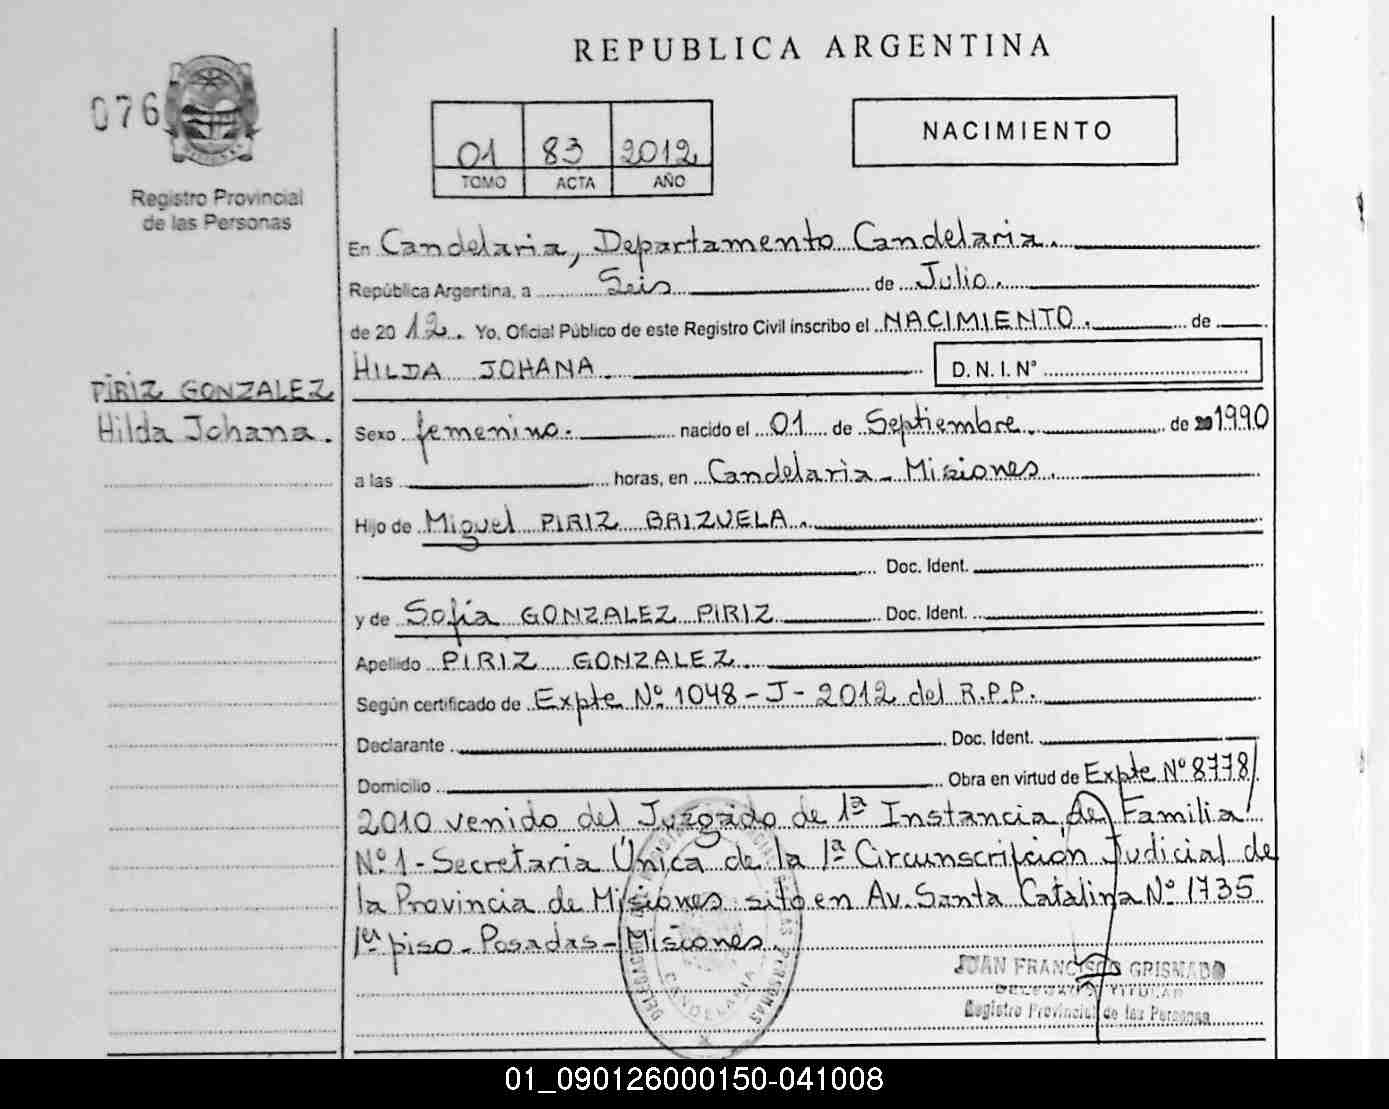 REPUBLICA ARGENTINA
076
01 83 2012
TOMO ACTA AÑO
NACIMIENTO
Registro Provincial
de las Personas
En Candelaria, Departamento Candelaria.
República Argentina, a Seis de Julio.
de 20 12. Yo, Oficial Público de este Registro Civil inscribo el NACIMIENTO. de
HILDA JOHANA. D. N. I. Nº
PIRIZ GONZALEZ
Hilda Johana.
Sexo femenino. nacido el 01 de Septiembre. de 1990
a las horas, en Candelaria - Misiones.
Hijo de Miguel PIRIZ BRIZUELA.
Doc. Ident.
y de Sofía GONZALEZ PIRIZ Doc. Ident.
Apellido PIRIZ GONZALEZ.
Según certificado de Expte Nº 1048-J-2012 del R.P.P.
Declarante Doc. Ident.
Domicilio Obra en virtud de Expte Nº 8778/
2010 venido del Juzgado de 1ª Instancia de Familia
Nº 1 - Secretaria Única de la 1ª Circunscripción Judicial de
la Provincia de Misiones sito en Av. Santa Catalina Nº 1735
1er piso - Posadas - Misiones.
JUAN FRANCISCO GRISMADO
DELEGADO TITULAR
Registro Provincial de las Personas
CANDELARIA
01_090126000150-041008